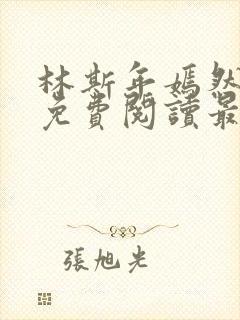 林斯年嫣然
免費閱讀最
張旭光